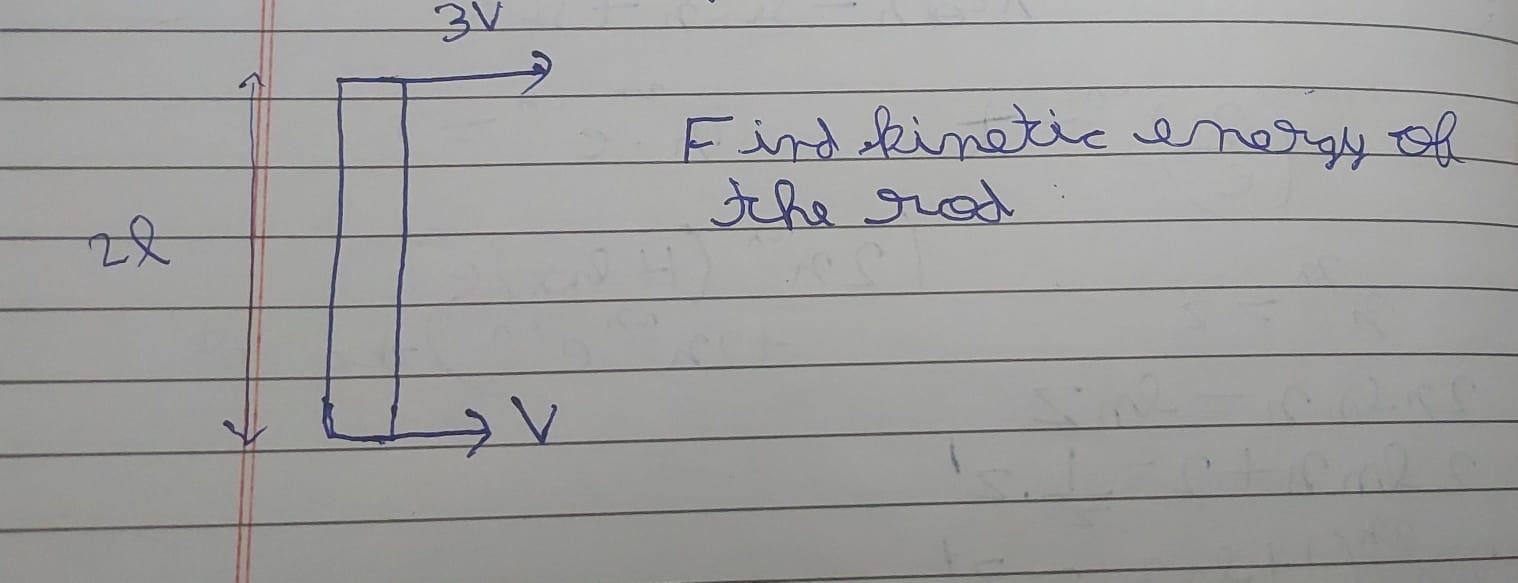 3V
Find kinetic energy of
the rod
2l
V